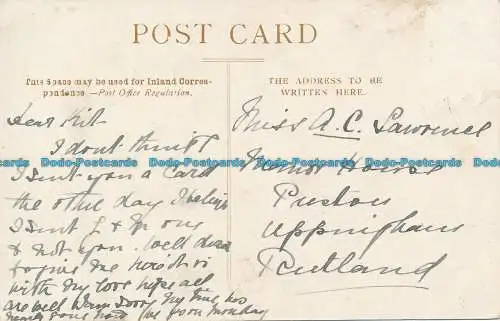 POST CARD
This Space may be used for Inland Correspondence.—Post Office Regulation.
THE ADDRESS TO BE
WRITTEN HERE.
Dear Kit
I dont think
I sent you a card
the other day I believe
I sent & one
& not you. Well dear
forgive me
with my love hope all
are well sorry my time has
soon Monday
Miss A. C. Lawrence
House
Preston
Uppingham
Rutland
Dodo-Postcards Dodo-Postcards Dodo-Postcards Dodo-Postcards Dodo-Postcards Dodo-Postcards